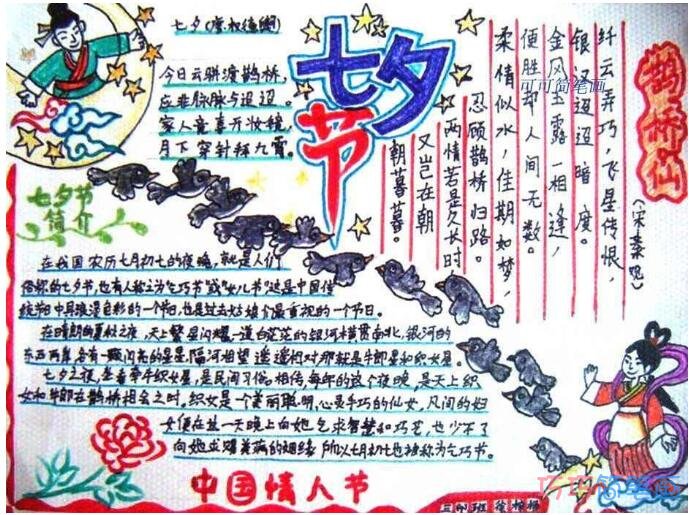 七夕(唐权德舆)
今日云骈渡鹊桥,
应非脉脉与迢迢。
家人竟喜开妆镜,
月下穿针拜九霄。
七夕
节
鹊桥仙
(宋秦观)
纤云弄巧,飞星传恨,
银汉迢迢暗度。
金风玉露一相逢,
便胜却人间无数。
柔情似水,佳期如梦,
忍顾鹊桥归路。
两情若是久长时
又岂在朝
朝暮暮。
可可简笔画
七夕节
简介
在我国农历七月初七的夜晚,就是人们
俗称的七夕节,也有人称之为"乞巧节"或"女儿节"这是中国传
统节日中具浪漫色彩的一个节日,也是过去姑娘们最重视的一个节日。
在晴朗的夏秋之夜,天上繁星闪耀,一道白茫茫的银河横贯南北,银河的
东西两岸,各有一颗闪亮的星星,隔河相望,遥遥相对那就是牛郎星和织女星。
七夕之夜,坐看牵牛织女星,是民间习俗,相传,每年的这个夜晚,是天上织
女和牛郎在鹊桥相会之时,织女是一个美丽聪明,心灵手巧的仙女,凡间的妇
女便在这一天晚上向她乞求智慧和巧艺,也少不了
向她求赐美满的姻缘,所以七月初七也被称为乞巧节。
中国情人节
巧巧简笔画